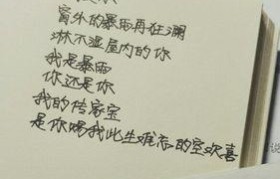 窗外的暴雨再狂澜
淋不湿屋内的你
我是暴雨
你还是你
我的传家宝
是你赐我此生难忘的空欢喜